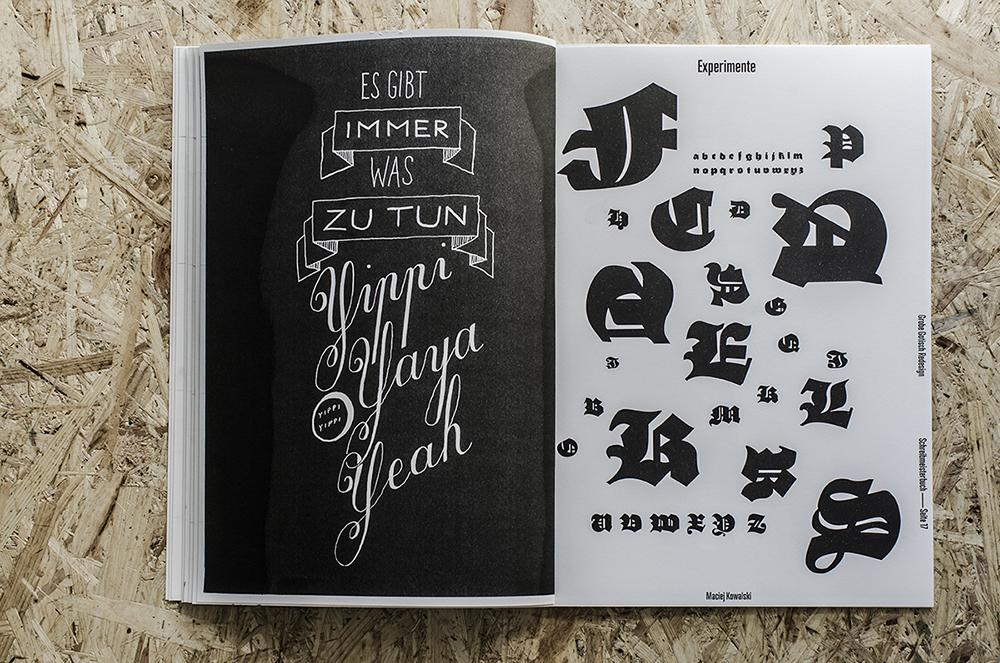 ES GIBT
IMMER
WAS
ZU TUN
Yippi
Yaya
YIPPI
YIPPI
Yeah
Experimente
abcdefghijklm
nopqrstuvwxyz
Grobe Gotisch Redesign
Schreibmeisterbuch — Seite 17
U V W X Y Z
Maciej Kowalski